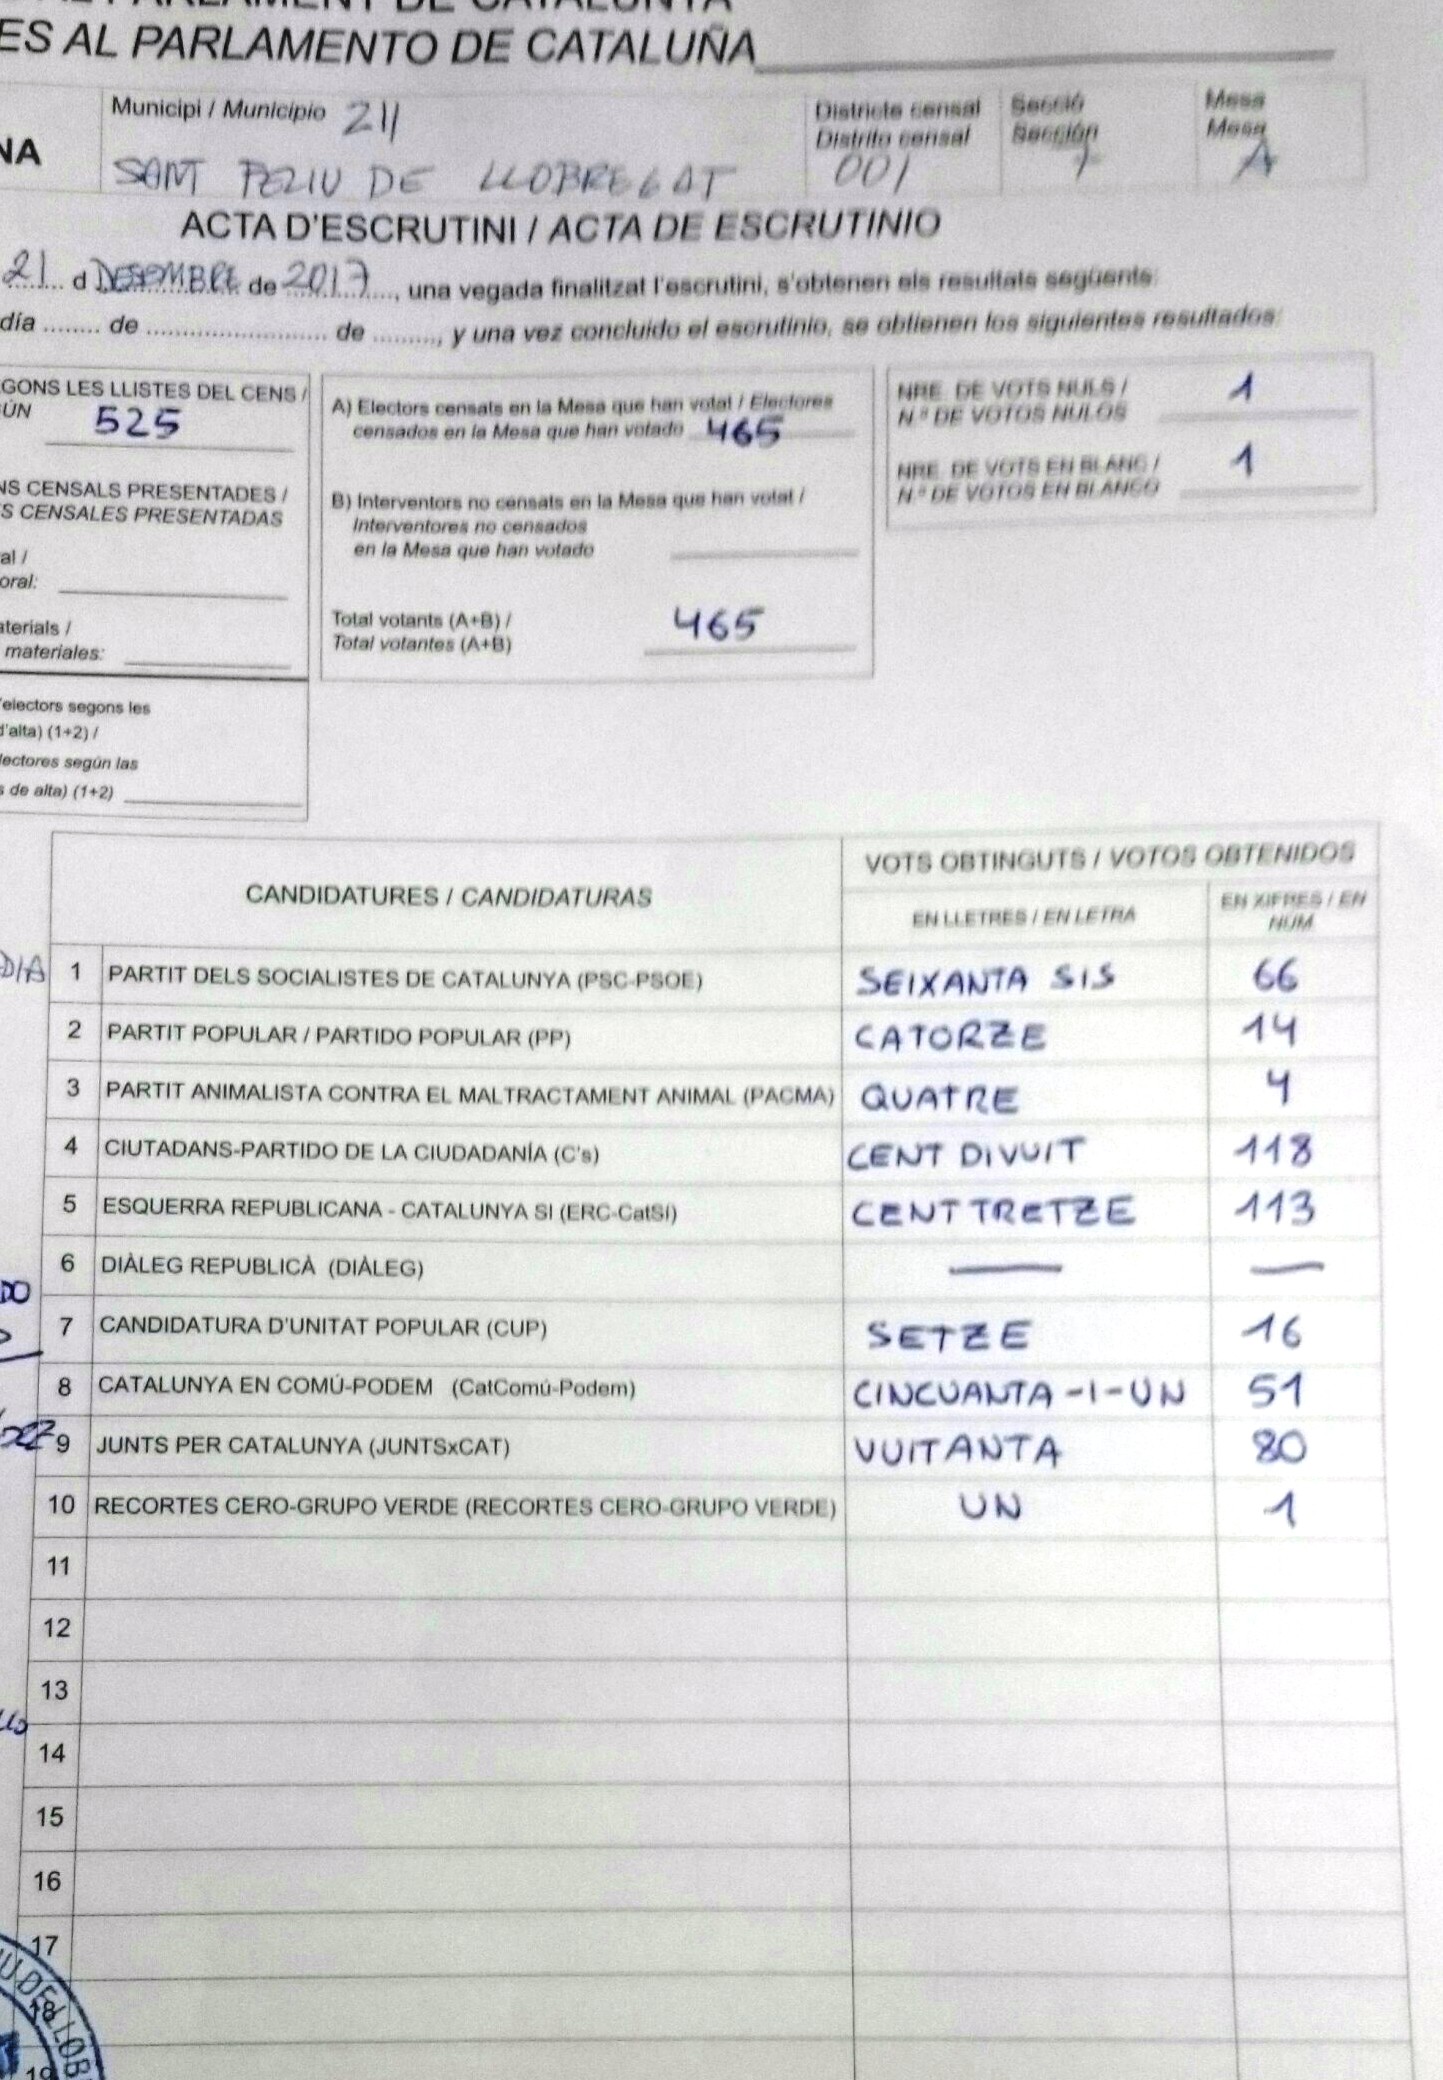 ES AL PARLAMENTO DE CATALUÑA
NA
Municipi / Municipio 211
SANT FELIU DE LLOBREGAT
Districte censal
Distrito censal
001
Secció
Sección
1
Mesa
Mesa
A
ACTA D'ESCRUTINI / ACTA DE ESCRUTINIO
21 d DESEMBRE de 2017, una vegada finalitzat l'escrutini, s'obtenen els resultats següents:
día ........ de ............................ de ........., y una vez concluido el escrutinio, se obtienen los siguientes resultados:
EGONS LES LLISTES DEL CENS /
ÚN 525
NS CENSALS PRESENTADES /
S CENSALES PRESENTADAS
al /
oral:
aterials /
materiales:
'electors segons les
d'alta) (1+2) /
lectores según las
s de alta) (1+2)
A) Electors censats en la Mesa que han votat / Electores
censados en la Mesa que han votado 465
B) Interventors no censats en la Mesa que han votat /
Interventores no censados
en la Mesa que han votado
Total votants (A+B) /
Total votantes (A+B)
465
NRE. DE VOTS NULS /
N.º DE VOTOS NULOS
1
NRE. DE VOTS EN BLANC /
N.º DE VOTOS EN BLANCO
1
CANDIDATURES / CANDIDATURAS
VOTS OBTINGUTS / VOTOS OBTENIDOS
EN LLETRES / EN LETRA
EN XIFRES / EN NUM
1 PARTIT DELS SOCIALISTES DE CATALUNYA (PSC-PSOE) SEIXANTA SIS 66
2 PARTIT POPULAR / PARTIDO POPULAR (PP) CATORZE 14
3 PARTIT ANIMALISTA CONTRA EL MALTRACTAMENT ANIMAL (PACMA) QUATRE 4
4 CIUTADANS-PARTIDO DE LA CIUDADANÍA (C's) CENT DIVUIT 118
5 ESQUERRA REPUBLICANA - CATALUNYA SI (ERC-CatSí) CENT TRETZE 113
6 DIÀLEG REPUBLICÀ (DIÀLEG) — —
7 CANDIDATURA D'UNITAT POPULAR (CUP) SETZE 16
8 CATALUNYA EN COMÚ-PODEM (CatComú-Podem) CINCUANTA-I-UN 51
9 JUNTS PER CATALUNYA (JUNTSxCAT) VUITANTA 80
10 RECORTES CERO-GRUPO VERDE (RECORTES CERO-GRUPO VERDE) UN 1
11
12
13
14
15
16
17
18
19